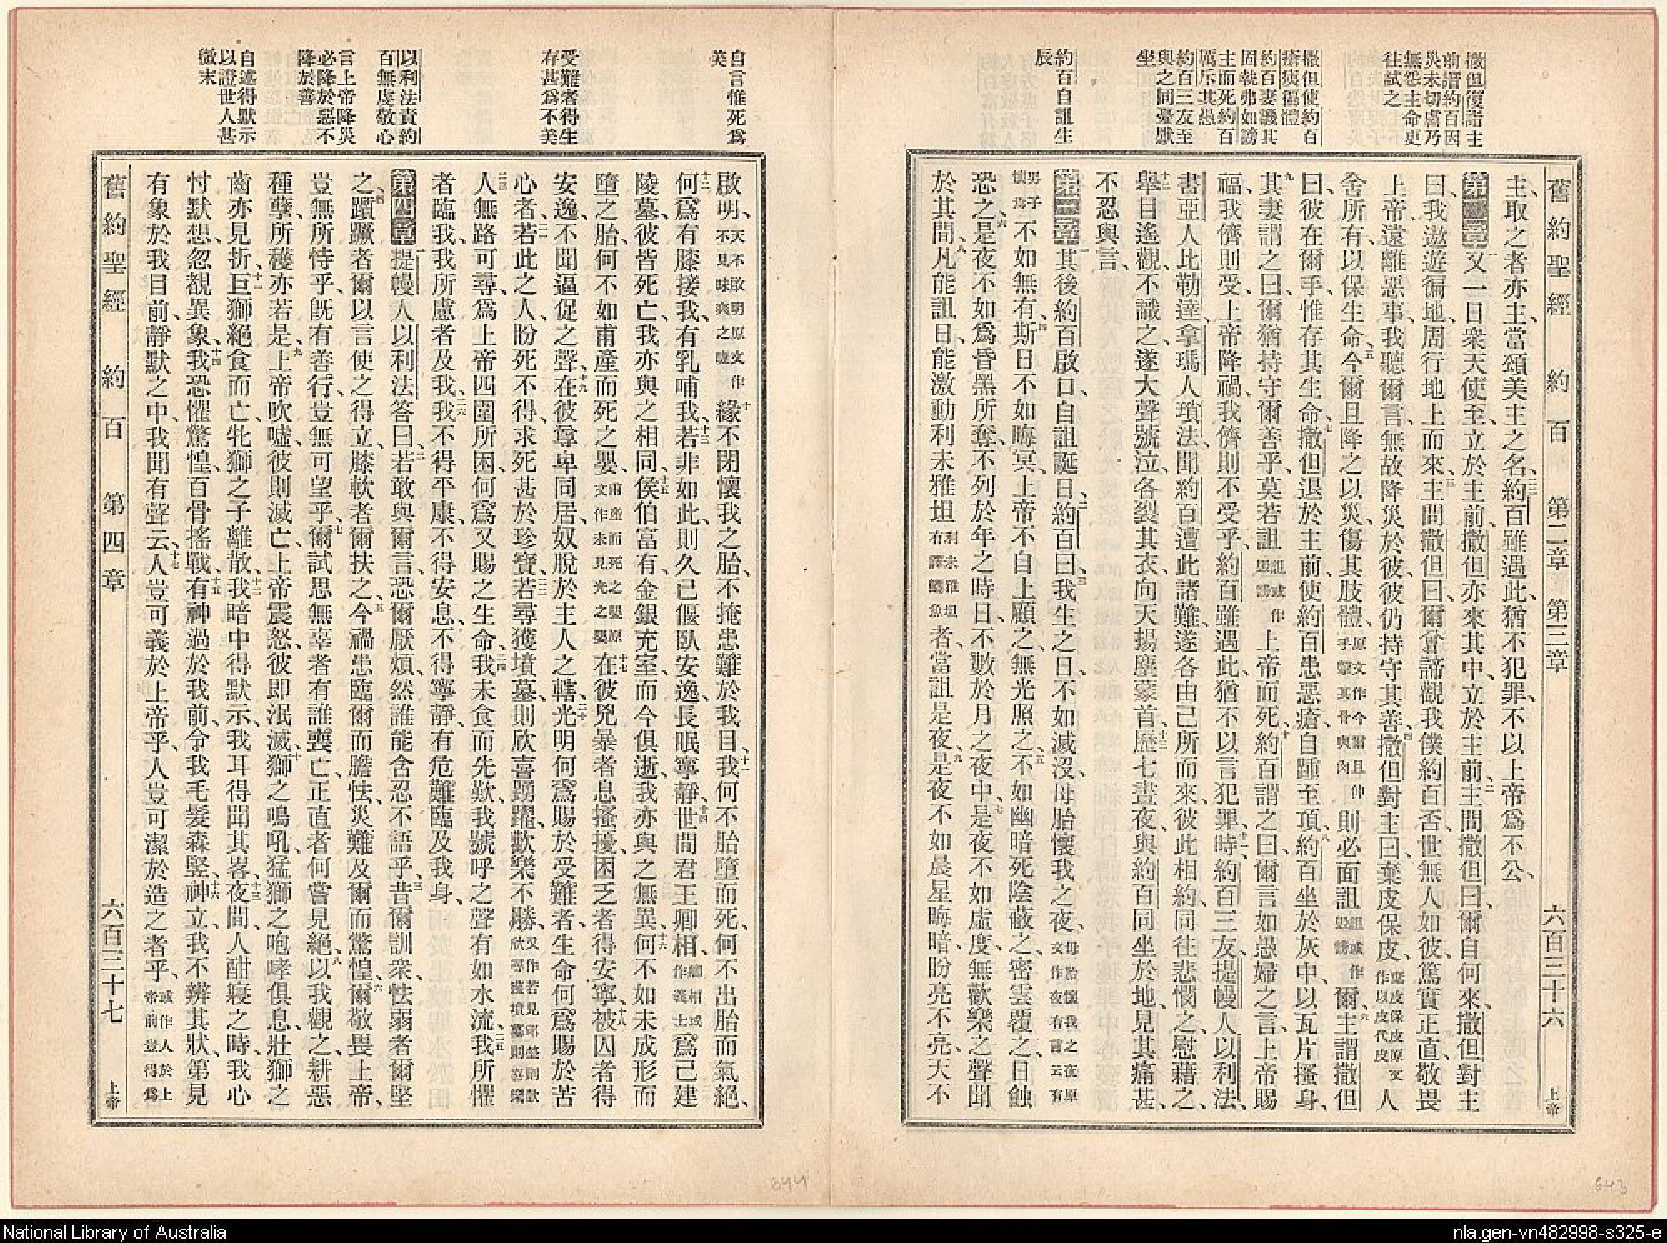 撒但復譖主
前譖約百因
災未切膚乃
無怨主命更
往試之
撒但使約百
瘡痍徧體
約百妻譏其
固執弗如謗
主而死約百
厲斥其愚
約百三友至
與之同憂默
坐
約百自詛生
辰
舊約聖經 約百 第二章 第三章 六百三十六 上帝
主、取之者亦主、當頌美主之名、約百雖遇此、猶不犯罪、不以上帝爲不公、
第二章 又一日衆天使至、立於主前、撒但亦來其中、立於主前、主問撒但曰、爾自何來、撒但對主
曰、我遨遊徧地、周行地上而來、主問撒但曰、爾曾諦觀我僕約百否、世無人如彼篤實正直、敬畏
上帝、遠離惡事、我聽爾言、無故降災於彼、彼仍持守其善、撒但對主曰、棄皮保皮、棄皮保皮原文作以皮代皮人
舍所有、以保生命、今爾且降之以災、傷其肢體、原文作今爾且伸手擊其骨與肉則必面詛詛或作毀謗爾、主謂撒但
曰、彼在爾手、惟存其生命、撒但退於主前、使約百患惡瘡、自踵至頂、約百坐於灰中、以瓦片搔身、
其妻謂之曰、爾猶持守爾善乎、莫若詛詛或作毀謗上帝而死、約百謂之曰、爾言如愚婦之言、上帝賜
福、我儕則受、上帝降禍、我儕則不受乎、約百雖遇此、猶不以言犯罪、時約百三友、提幔人以利法、
書亞人比勒達、拿瑪人瑣法、聞約百遭此諸難、遂各由己所而來、彼此相約、同往悲憫之慰藉之、
舉目遙觀、不識之、遂大聲號泣、各裂其衣、向天揚塵蒙首、歷七晝夜、與約百同坐於地、見其痛甚、
不忍與言、
第三章 其後約百啟口、自詛誕日、約百曰、我生之日、不如滅沒、母胎懷我之夜、母胎懷我之夜原文作夜有言云有
男子懷孕不如無有、斯日不如晦冥、上帝不自上顧之、無光照之、不如幽暗死陰蔽之、密雲覆之、日蝕
恐之、是夜不如爲昏黑所奪、不列於年之時日、不數於月之夜中、是夜不如虛度、無歡樂之聲聞
於其間、凡能詛日、能激動利未雅坦利未雅坦有譯鱷魚者、當詛是夜、是夜不如晨星晦暗、盼亮不亮、天不
自言惟死爲
美
受難者得生
存甚爲不美
以利法責約
百無虔敬心
言上帝降災
必降於惡不
降於善
自述得默示
以證世人甚
微末
啟明、天不啟明原文作不見昧爽之睫緣不閉懷我之胎、不掩患難於我目、我何不胎墮而死、何不出胎而氣絕、
何爲有膝接我、有乳哺我、若非如此、則久已偃臥安逸、長眠寧靜、世間君王卿相、卿相或作義士爲己建
陵墓、彼皆死亡、我亦與之相同、侯伯富有金銀充室、而今俱逝、我亦與之無異、何不如未成形而
墮之胎、何不如甫產而死之嬰、甫產而死之嬰原文作未見光之嬰在彼兇暴者息擾、困乏者得安寧、被囚者得
安逸、不聞逼促之聲、在彼尊卑同居、奴脫於主人之轄、光明何爲賜於受難者、生命何爲賜於苦
心者、若此之人、盼死不得、求死甚於珍寶、若尋獲墳墓、則欣喜踴躍、歡樂不勝、又作若見邱壑則歡欣尋獲墳墓則喜樂
人無路可尋、爲上帝四圍所困、何爲又賜之生命、我未食而先歎、我號呼之聲、有如水流、我所懼
者臨我、我所慮者及我、我不得平康、不得安息、不得寧靜、有危難臨及我身、
第四章 提幔人以利法答曰、若敢與爾言、恐爾厭煩、然誰能含忍不語乎、昔爾訓衆、怯弱者爾堅
之、躓蹶者爾以言使之得立、膝軟者爾扶之、今禍患臨爾而膽怯、災難及爾而驚惶、爾敬畏上帝、
豈無所恃乎、旣有善行、豈無可望乎、爾試思無辜者有誰喪亡、正直者何嘗見絕、以我觀之、耕惡
種孽、所穫亦若是、上帝吹噓、彼則滅亡、上帝震怒、彼即泯滅、獅之鳴吼、猛獅之咆哮俱息、壯獅之
齒亦見折、巨獅絕食而亡、牝獅之子離散、我暗中得默示、我耳得聞其畧、夜間人酣寢之時、我心
忖默想、忽覩異象、我恐懼驚惶、百骨搖戰、有神過於我前、令我毛髮森竪、神立、我不辨其狀、第見
有象於我目前、靜默之中、我聞有聲云、人豈可義於上帝乎、人豈可潔於造之者乎、或作人於上帝前豈得爲
舊約聖經 約百 第四章 六百三十七 上帝
644
643
National Library of Australia
nla.gen-vn482998-s325-e